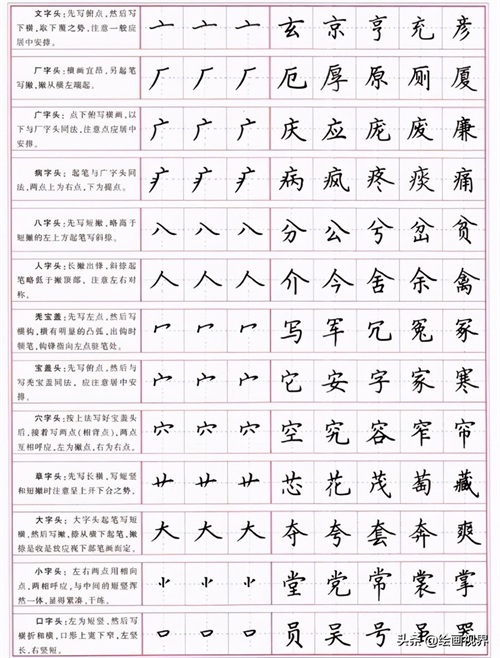 文字头：先写俯点，然后写
下横，取下覆之势，注意一般应
居中安排。
亠 亠 亠 玄 京 亨 充 彦
厂字头：横画宜昂，另起笔
写撇，撇从横左端起。
厂 厂 厂 厄 厚 原 厕 厦
广字头：点下俯写横画，以
下与厂字头同法，注意点应居中
安排。
广 广 广 庆 应 庞 废 廉
病字头：起笔与广字头同
法，两点上为右点，下为提点。
疒 疒 疒 病 疯 疼 痰 痛
八字头：先写短撇，略高于
短撇的左上方起笔写斜捺。
八 八 八 分 公 兮 岔 贫
人字头：长撇出锋，斜捺起
笔略低于撇顶部，注意左右对
称。
人 人 人 介 今 舍 余 禽
秃宝盖：先写左点，然后写
横钩，横有明显的凸弧，出钩时
顿笔，钩锋指向左点驻笔处。
冖 冖 冖 写 军 冗 冤 冢
宝盖头：先写俯点，然后与
写秃宝盖同法，应注意居中安
排。
宀 宀 宀 它 安 字 家 寒
穴字头：按上法写好宝盖头
后，接着写两点(相背点)，两点
互相呼应，左为撇点，右为右点。
穴 穴 穴 空 究 容 窄 帘
草字头：先写长横，写短竖
和短撇时注意呈上开下合之势。
艹 艹 艹 芯 花 茂 萄 藏
大字头：大字头起笔写短
横，然后写撇，捺从横下起笔，撇
捺是收是放应视下部笔画而定。
大 大 大 夺 夸 套 奔 爽
小字头：左右两点用相向
点，两相呼应，与中间的短竖浑
然一体，显得紧凑、干练。
⺌ ⺌ ⺌ 堂 党 常 裳 掌
口字头：左为短竖，然后写
横折和横，口形上宽下窄，左竖
长，右竖短。
口 口 口 员 吴 号
头条@绘画视界